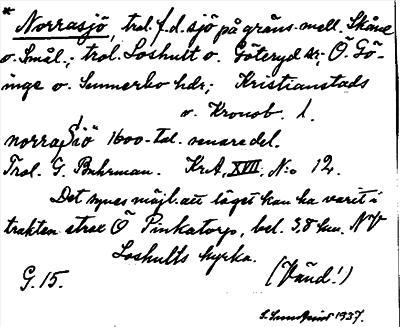 * Norrasjö, trol. f.d. sjö på gräns. mell. Skåne
o. Smål.; trol. Loshult o. Göteryd sr; Ö. Gö-
inge o. Sunnerbo hdr; Kristianstads
o. Kronob. l.
norra Sjö 1600-tal. senare del.
Trol. G. Buhrman. KrA, XVII, N:o 12.
Det synes möjl. att läget kan ha varit i
trakten strax Ö Pinkatorp, bel. 3,8 km. NV
Loshults kyrka.
G. 15. (Vänd!)
1937.